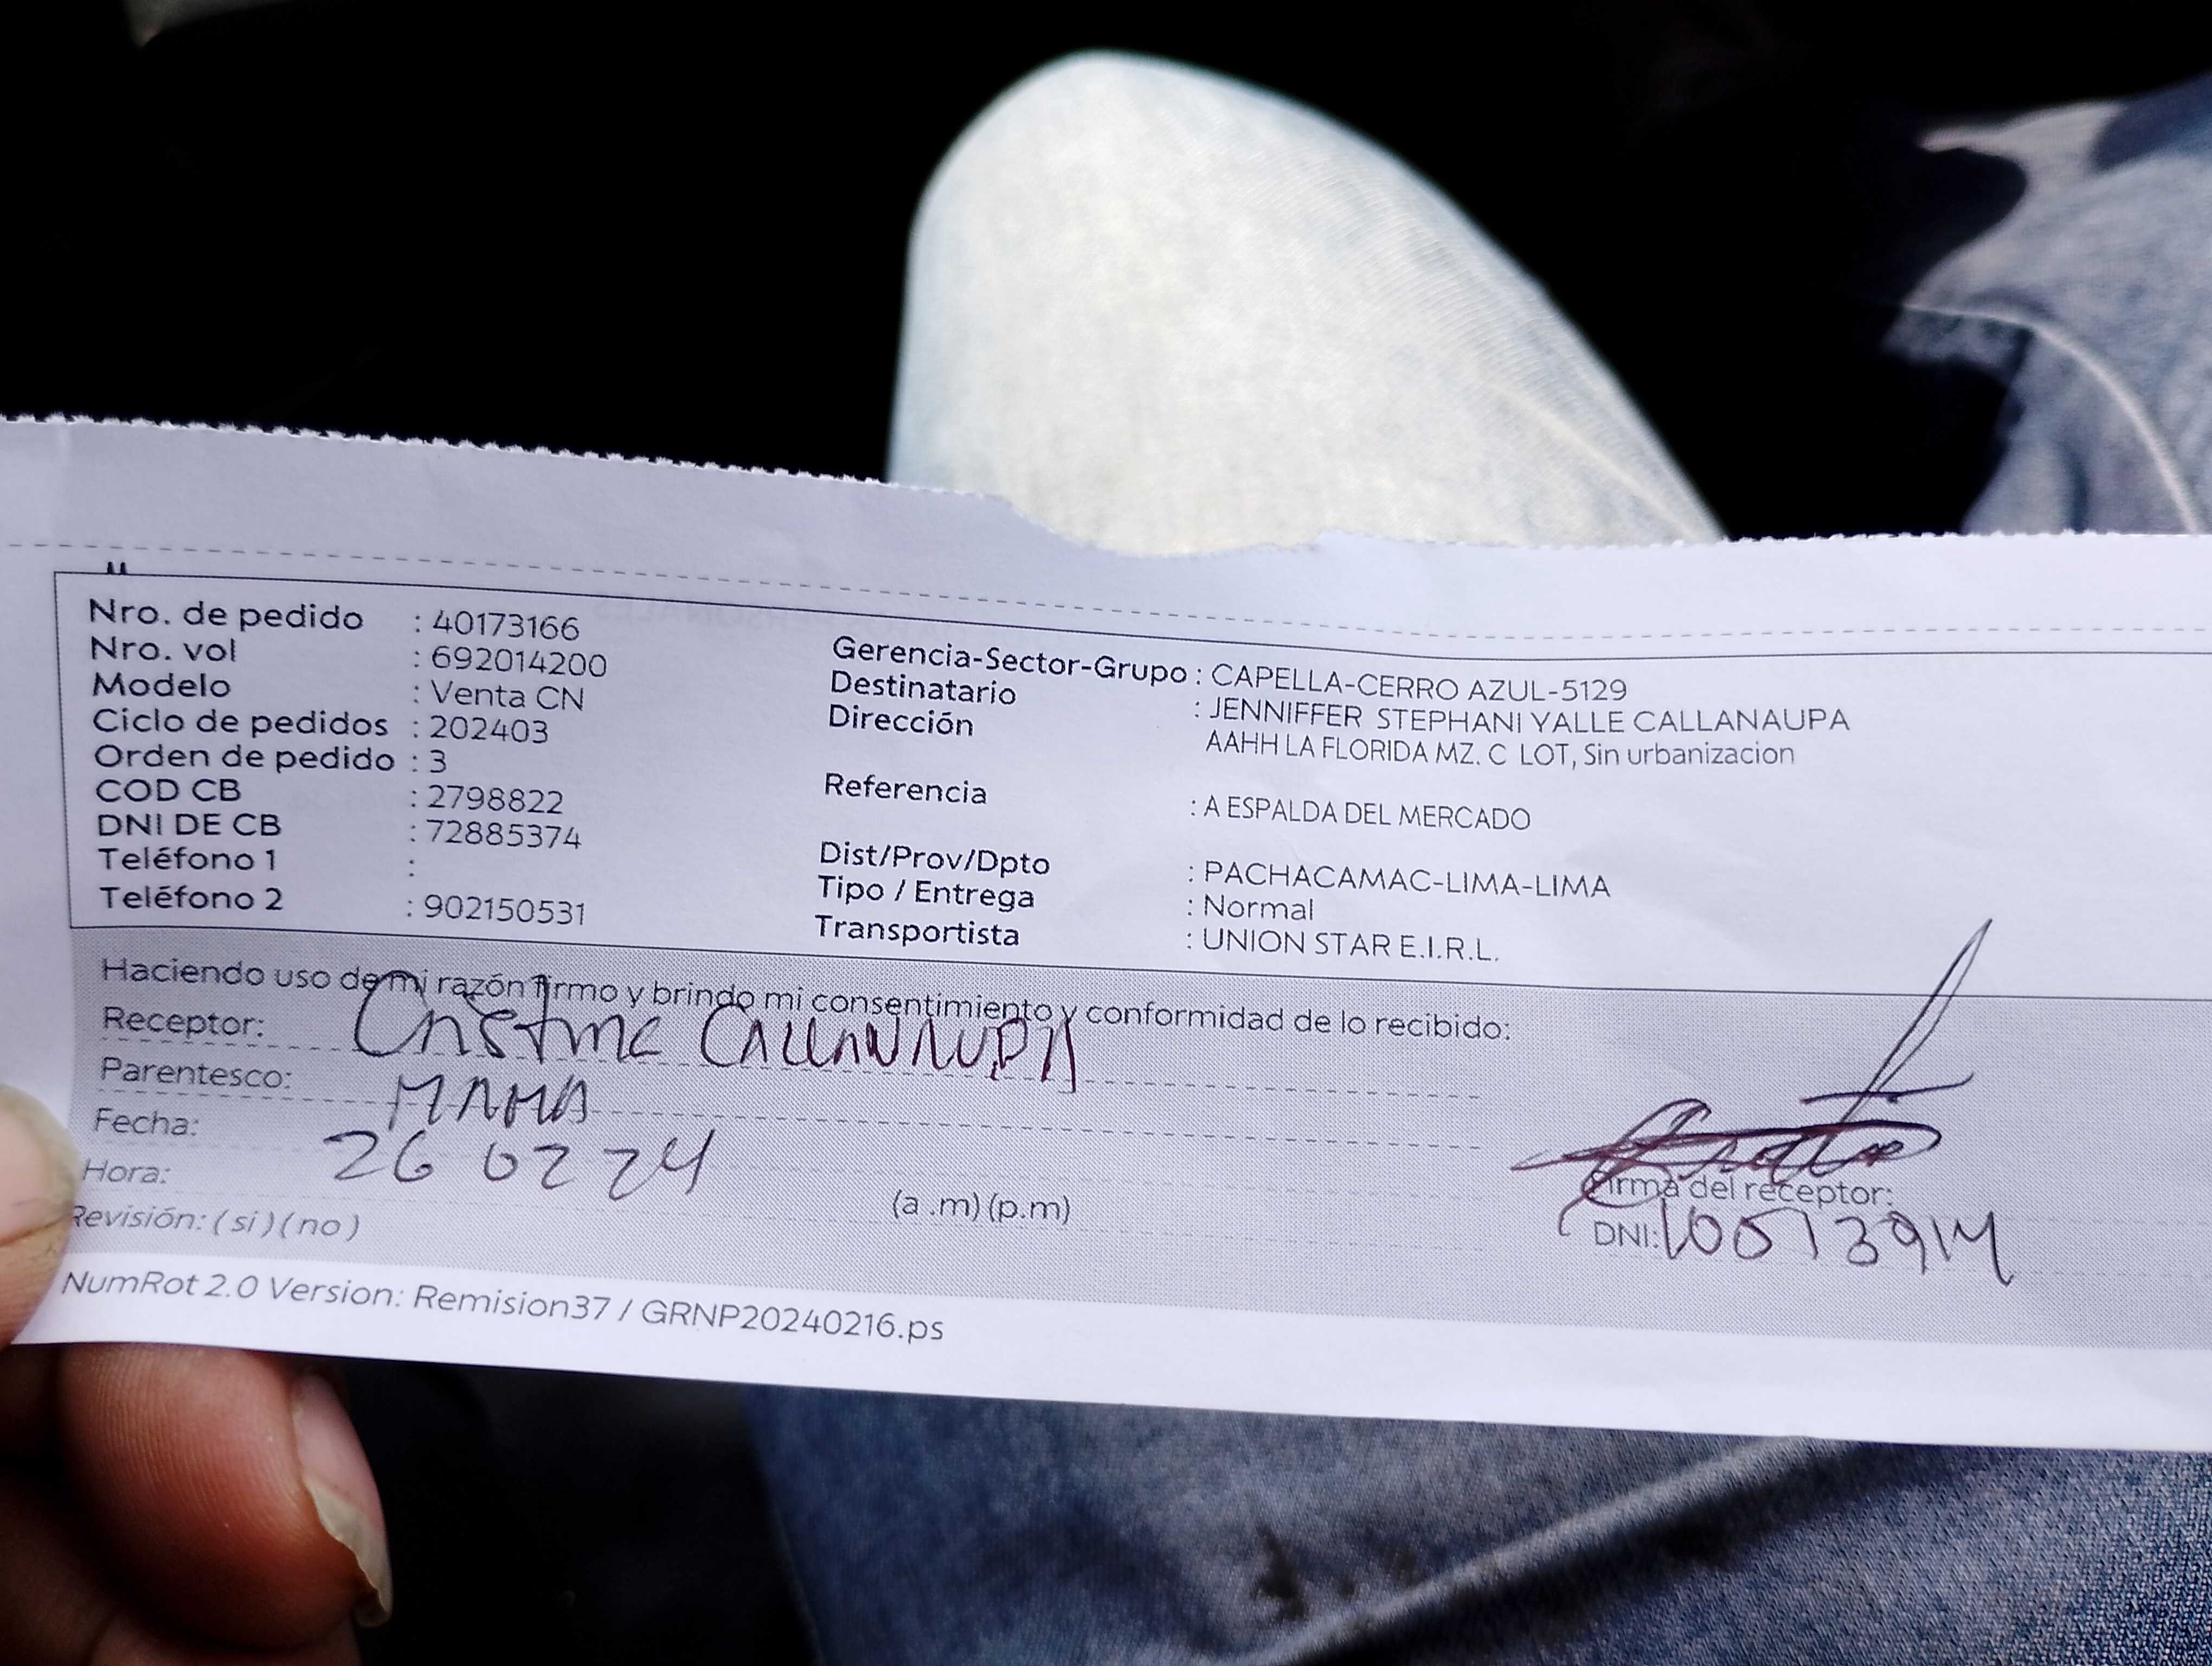 Nro. de pedido : 40173166
Nro. vol : 692014200
Modelo : Venta CN
Ciclo de pedidos : 202403
Orden de pedido : 3
COD CB : 2798822
DNI DE CB : 72885374
Teléfono 1 :
Teléfono 2 : 902150531
Gerencia-Sector-Grupo : CAPELLA-CERRO AZUL-5129
Destinatario : JENNIFFER STEPHANI YALLE CALLANAUPA
Dirección AAHH LA FLORIDA MZ. C LOT, Sin urbanizacion
Referencia : A ESPALDA DEL MERCADO
Dist/Prov/Dpto : PACHACAMAC-LIMA-LIMA
Tipo / Entrega : Normal
Transportista : UNION STAR E.I.R.L.
Haciendo uso de mi razón firmo y brindo mi consentimiento y conformidad de lo recibido:
Receptor: Cristina CALLANAUPA
Parentesco: MAMA
Fecha: 26 02 24
Hora: (a .m) (p.m)
Revisión: ( si ) ( no )
Firma del receptor:
DNI: 10073914
NumRot 2.0 Version: Remision37 / GRNP20240216.ps